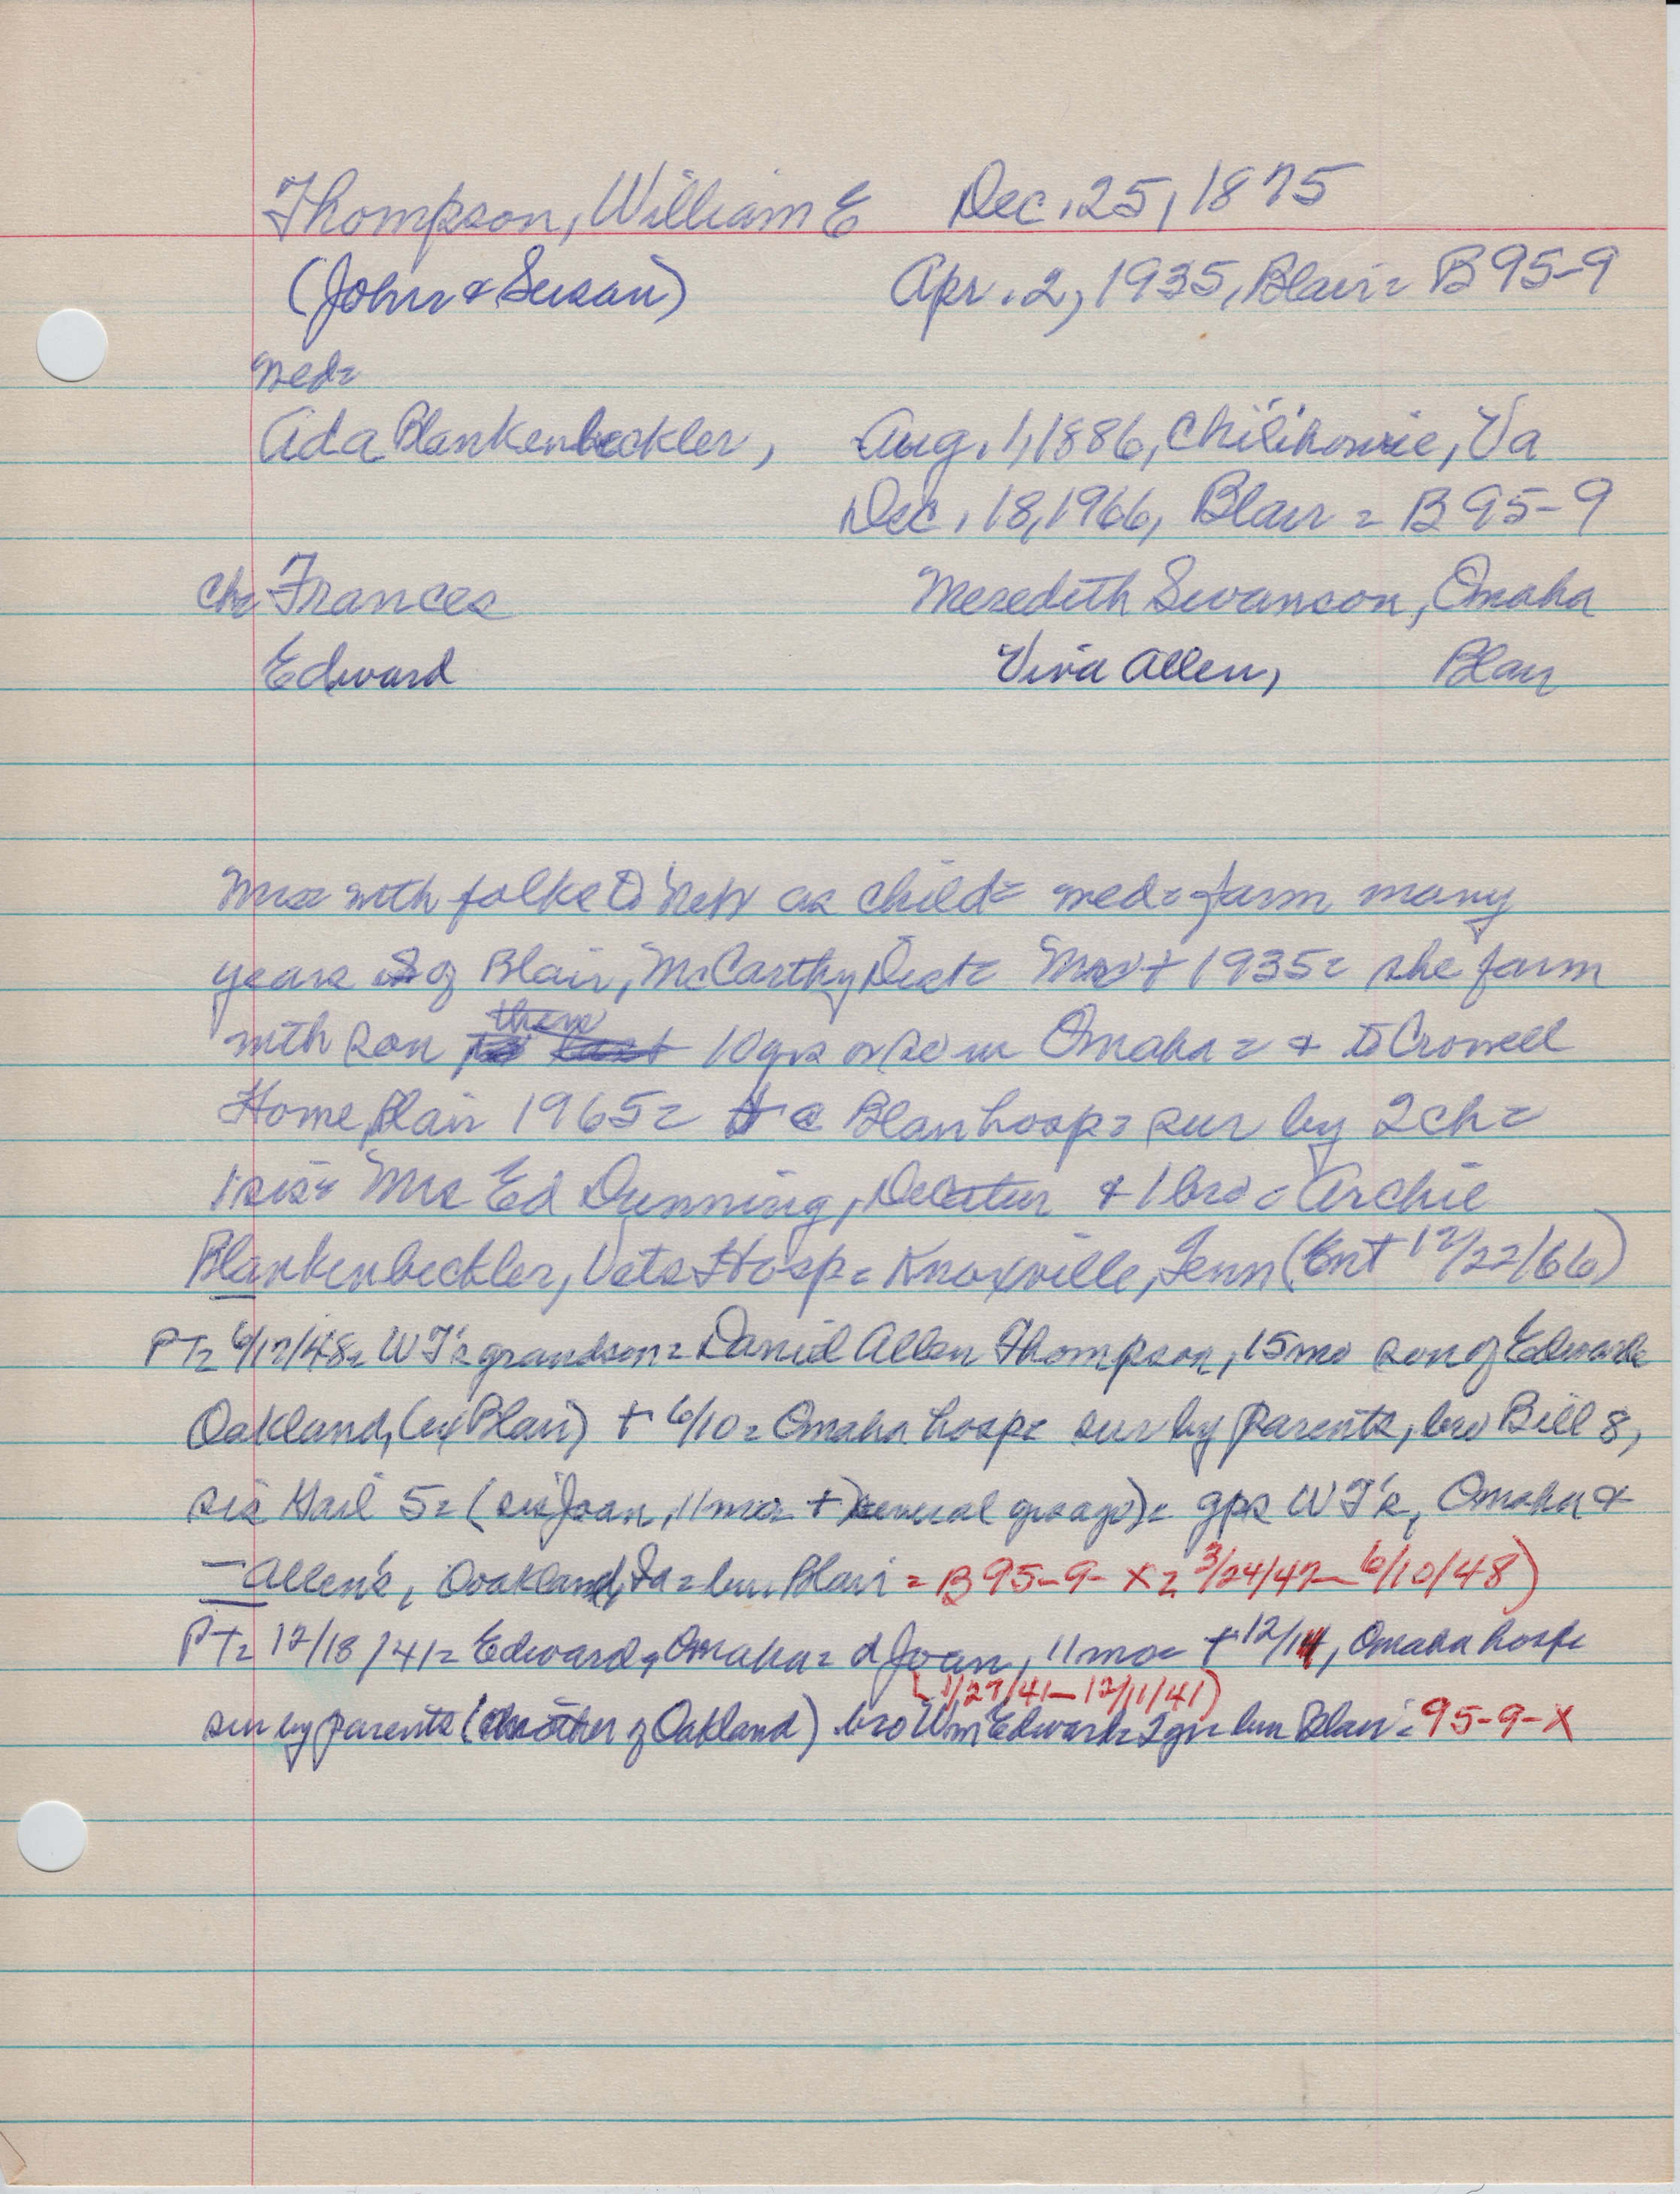 Thompson, William E Dec. 25, 1875
(John & Susan) Apr. 2, 1935, Blair = B 95-9
med=
Ada Blankenbeckler, Aug. 1, 1886, Chilihowie, Va
Dec. 18, 1966, Blair = B 95-9
Ch= Frances Meredith Swanson, Omaha
Edward Viva Allen, Blair
Mrs with folks to Neb as child= med= farm many
years of Blair, McCarthy Dist= 1935= she farm
with son then 10 yrs or so in Omaha = & to Crowell
Home Blair 1965= Blair hosp= sur by 2 ch=
1 sis= Mrs Ed Dunning, Decatur & 1 bro = Archie
Blankenbeckler, Vets Hosp= Knoxville, Tenn (Ent 12/22/66)
PT= 6/17/48= WT's grandson= Daniel Allen Thompson, 15 mo son of Edwards
Oakland, (ex Blair) + 6/10= Omaha hosp= sur by parents, bro Bill 8,
sis Gail 5= (sis Joan, 11 mo= +) several yrs ago)= gps WT's, Omaha &
— Allen's, Oakland, Ia = bur. Blair = B 95-9-X= 3/24/47—6/10/48)
PT= 12/18/41= Edwards, Omaha= d Joan, 11 mo= + 12/11, Omaha hosp=
(1/27/41—12/11/41)
sur by parents (mother of Oakland) bro Wm Edward= 2 yr= bur Blair= 95-9-X